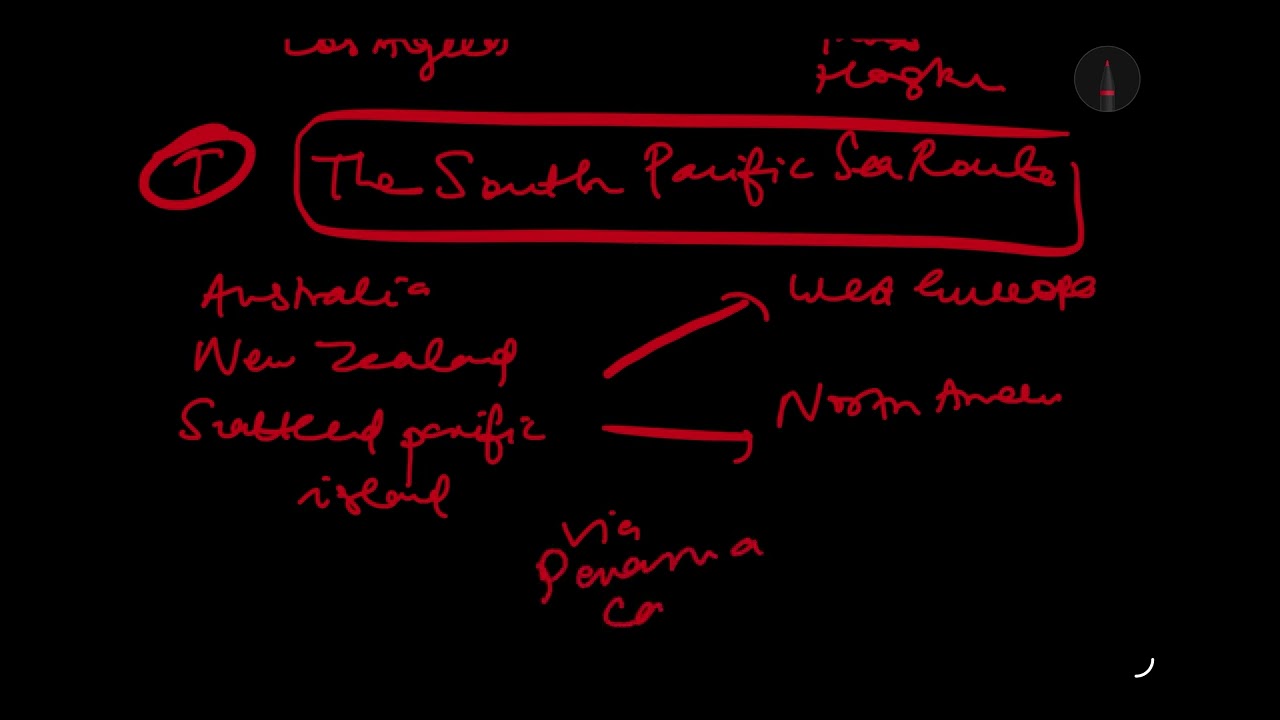 Los Angeles
The South Pacific Sea Route
Australia
West Europe
New Zealand
North Amer
Scattered pacific
island
via
Panama
Ca